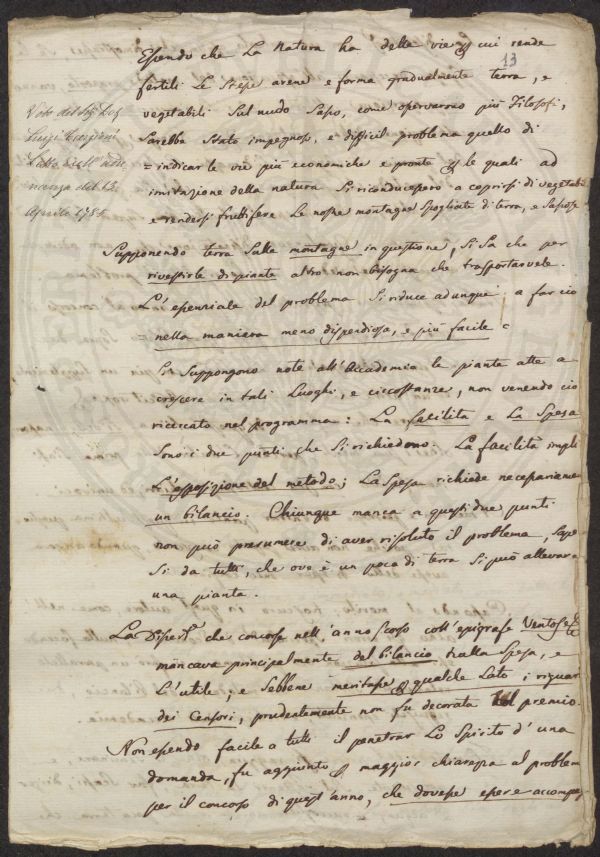 13
Essendo che La Natura ha delle vie p cui rende
fertili Le Stesse arene e forma gradualmente terra, e
vegetabili Sul nudo Sasso, come osservarono più Filosofi,
Sarebbe Stato impegnoso, e difficil problema quello di
= indicar le vie più economiche e pronte p le quali ad
imitazione della natura Si riconducessero a coprirsi di vegetabi
e rendersi fruttifere Le nostre montagne Spogliate di terra, e Sassose
Voto del Sig. Dog
Luigi
Letto nell'Adu
nanza del 13.
Aprile 1784.
Supponendo terra Sulle montagne in questione, Si Sa che per
rivestirle di piante altro non bisogna che trasportarvele.
L'essenziale del problema Si riduce adunque a far ciò
nella maniera meno dispendiosa, e più facile =
Si Suppongono note all'Accademia le piante atte a
crescere in tali Luoghi, e circostanze, non venendo ciò
ricercato nel programma: La facilità e La Spesa
Sono i due punti che Si richiedono. La facilità impli
L'esposizione del metodo; La Spesa richiede necessariame
un bilancio. Chiunque manca a questi due punti
non può presumere di aver risoluto il problema, Sape
Si da tutti, che ove è un poca di terra Si può allevare
una pianta.
La Dissert.e che concorse nell'anno Scorso coll'epigrafe Ventos
mancava principalmente del bilancio tralla Spesa, e
L'utile; e Sebbene meritasse p qualche Lato i riguar
dei Censori, prudentemente non fu decorata del premio.
Non essendo facile a tutti il penetrar Lo Spirito d'una
domanda, fu aggiunto p maggior chiarezza al problem
per il concorso di quest'anno, che dovesse essere accompag